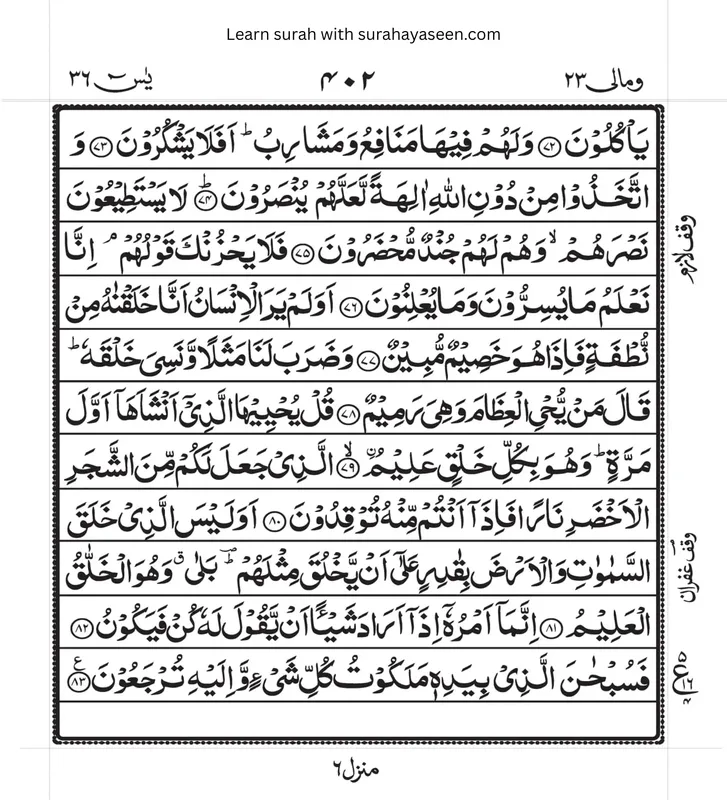 Learn surah with surahayaseen.com
ومالی ۲۳ ۴۰۲ یٰسٓ ۳۶
یَاْكُلُوْنَ ﴿۷۲﴾ وَلَهُمْ فِیْهَا مَنَافِعُ وَمَشَارِبُ ؕ اَفَلَا یَشْكُرُوْنَ ﴿۷۳﴾ وَ
اتَّخَذُوْا مِنْ دُوْنِ اللّٰهِ اٰلِهَةً لَّعَلَّهُمْ یُنْصَرُوْنَ ﴿۷۴﴾ؕ لَا یَسْتَطِیْعُوْنَ
نَصْرَهُمْ ۙ وَهُمْ لَهُمْ جُنْدٌ مُّحْضَرُوْنَ ﴿۷۵﴾ فَلَا یَحْزُنْكَ قَوْلُهُمْ ۘ اِنَّا
وقف لازم
نَعْلَمُ مَا یُسِرُّوْنَ وَمَا یُعْلِنُوْنَ ﴿۷۶﴾ اَوَلَمْ یَرَ الْاِنْسَانُ اَنَّا خَلَقْنٰهُ مِنْ
نُّطْفَةٍ فَاِذَا هُوَ خَصِیْمٌ مُّبِیْنٌ ﴿۷۷﴾ وَضَرَبَ لَنَا مَثَلًا وَّنَسِیَ خَلْقَهٗ ؕ
قَالَ مَنْ یُّحْیِ الْعِظَامَ وَهِیَ رَمِیْمٌ ﴿۷۸﴾ قُلْ یُحْیِیْهَا الَّذِیْۤ اَنْشَاَهَاۤ اَوَّلَ
مَرَّةٍ ؕ وَهُوَ بِكُلِّ خَلْقٍ عَلِیْمُ ﴿۷۹﴾ۙ الَّذِیْ جَعَلَ لَكُمْ مِّنَ الشَّجَرِ
الْاَخْضَرِ نَارًا فَاِذَاۤ اَنْتُمْ مِّنْهُ تُوْقِدُوْنَ ﴿۸۰﴾ اَوَلَیْسَ الَّذِیْ خَلَقَ
السَّمٰوٰتِ وَالْاَرْضَ بِقٰدِرٍ عَلٰۤی اَنْ یَّخْلُقَ مِثْلَهُمْ ؕ بَلٰی ۗ وَهُوَ الْخَلّٰقُ
وقف غفران
الْعَلِیْمُ ﴿۸۱﴾ اِنَّمَاۤ اَمْرُهٗۤ اِذَاۤ اَرَادَ شَیْـًٔا اَنْ یَّقُوْلَ لَهٗ كُنْ فَیَكُوْنُ ﴿۸۲﴾
فَسُبْحٰنَ الَّذِیْ بِیَدِهٖ مَلَكُوْتُ كُلِّ شَیْءٍ وَّاِلَیْهِ تُرْجَعُوْنَ ﴿۸۳﴾
منزل ۶